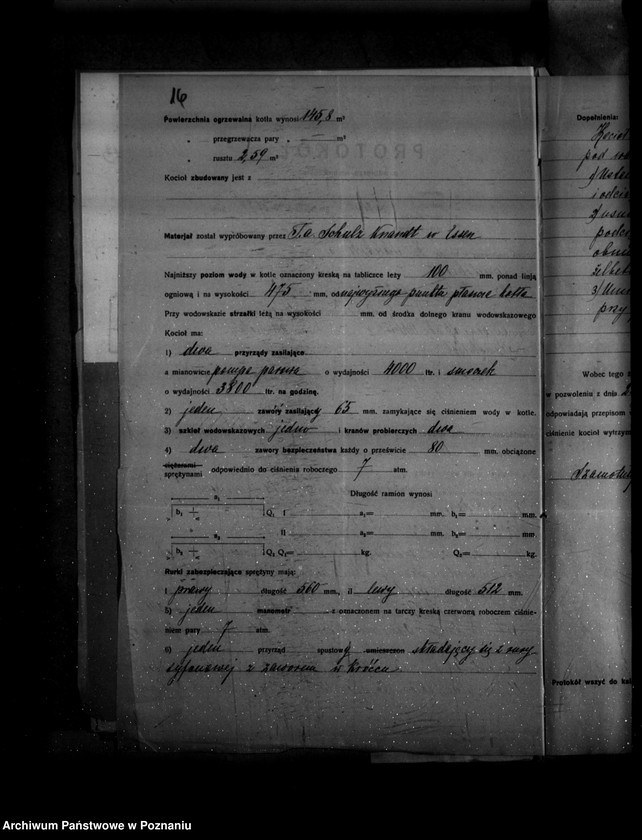 16
Powierzchnia ogrzewalna kotła wynosi 145,8 m²
„ przegrzewacza pary „ — m²
„ rusztu 2,59 m²
Kocioł zbudowany jest z
Materjał został wypróbowany przez Fa. Schulz Knaudt w Essen
Najniższy poziom wody w kotle oznaczony kreską na tabliczce leży 100 mm. ponad linją
ogniową i na wysokości 475 mm. od najwyższego punktu płaszcza kotła
Przy wodowskazie strzałki leżą na wysokości mm. od środka dolnego kranu wodowskazowego
Kocioł ma:
1) dwa przyrządy zasilające
a mianowicie pompa parowa o wydajności 4000 ltr. i smoczek
o wydajności 3800 ltr. na godzinę.
2) jeden zawór zasilający 65 mm. zamykające się ciśnieniem wody w kotle.
3) szkieł wodowskazowych jedno i kranów probierczych dwa
4) dwa zawory bezpieczeństwa każdy o prześwicie 80 mm. obciążone
ciężarami
sprężynami odpowiednio do ciśnienia roboczego 7 atm.
Długość ramion wynosi
a₁
b₁ Q₁ I a₁= mm. b₁= mm.
II a₂= mm. b₂= mm.
a₂
b₂ Q₂ Q₁= kg. Q₂= kg.
Rurki zabezpieczające sprężyny mają:
I prawy długość 560 mm., II lewy długość 512 mm.
5) jeden manometr z oznaczonem na tarczy kreską czerwoną roboczem ciśnie-
niem pary 7 atm.
6) jeden przyrząd spustowy umieszczon składający się z rury
syfonowej z zaworem w króćcu
Dopełnienia:
Kocioł
pod
1)
i
2)
3)
przy
Wobec tego
w pozwoleniu z dnia
odpowiadają przepisom
ciśnienie kocioł wytrzym
Protokół wszyć do
Archiwum Państwowe w Poznaniu